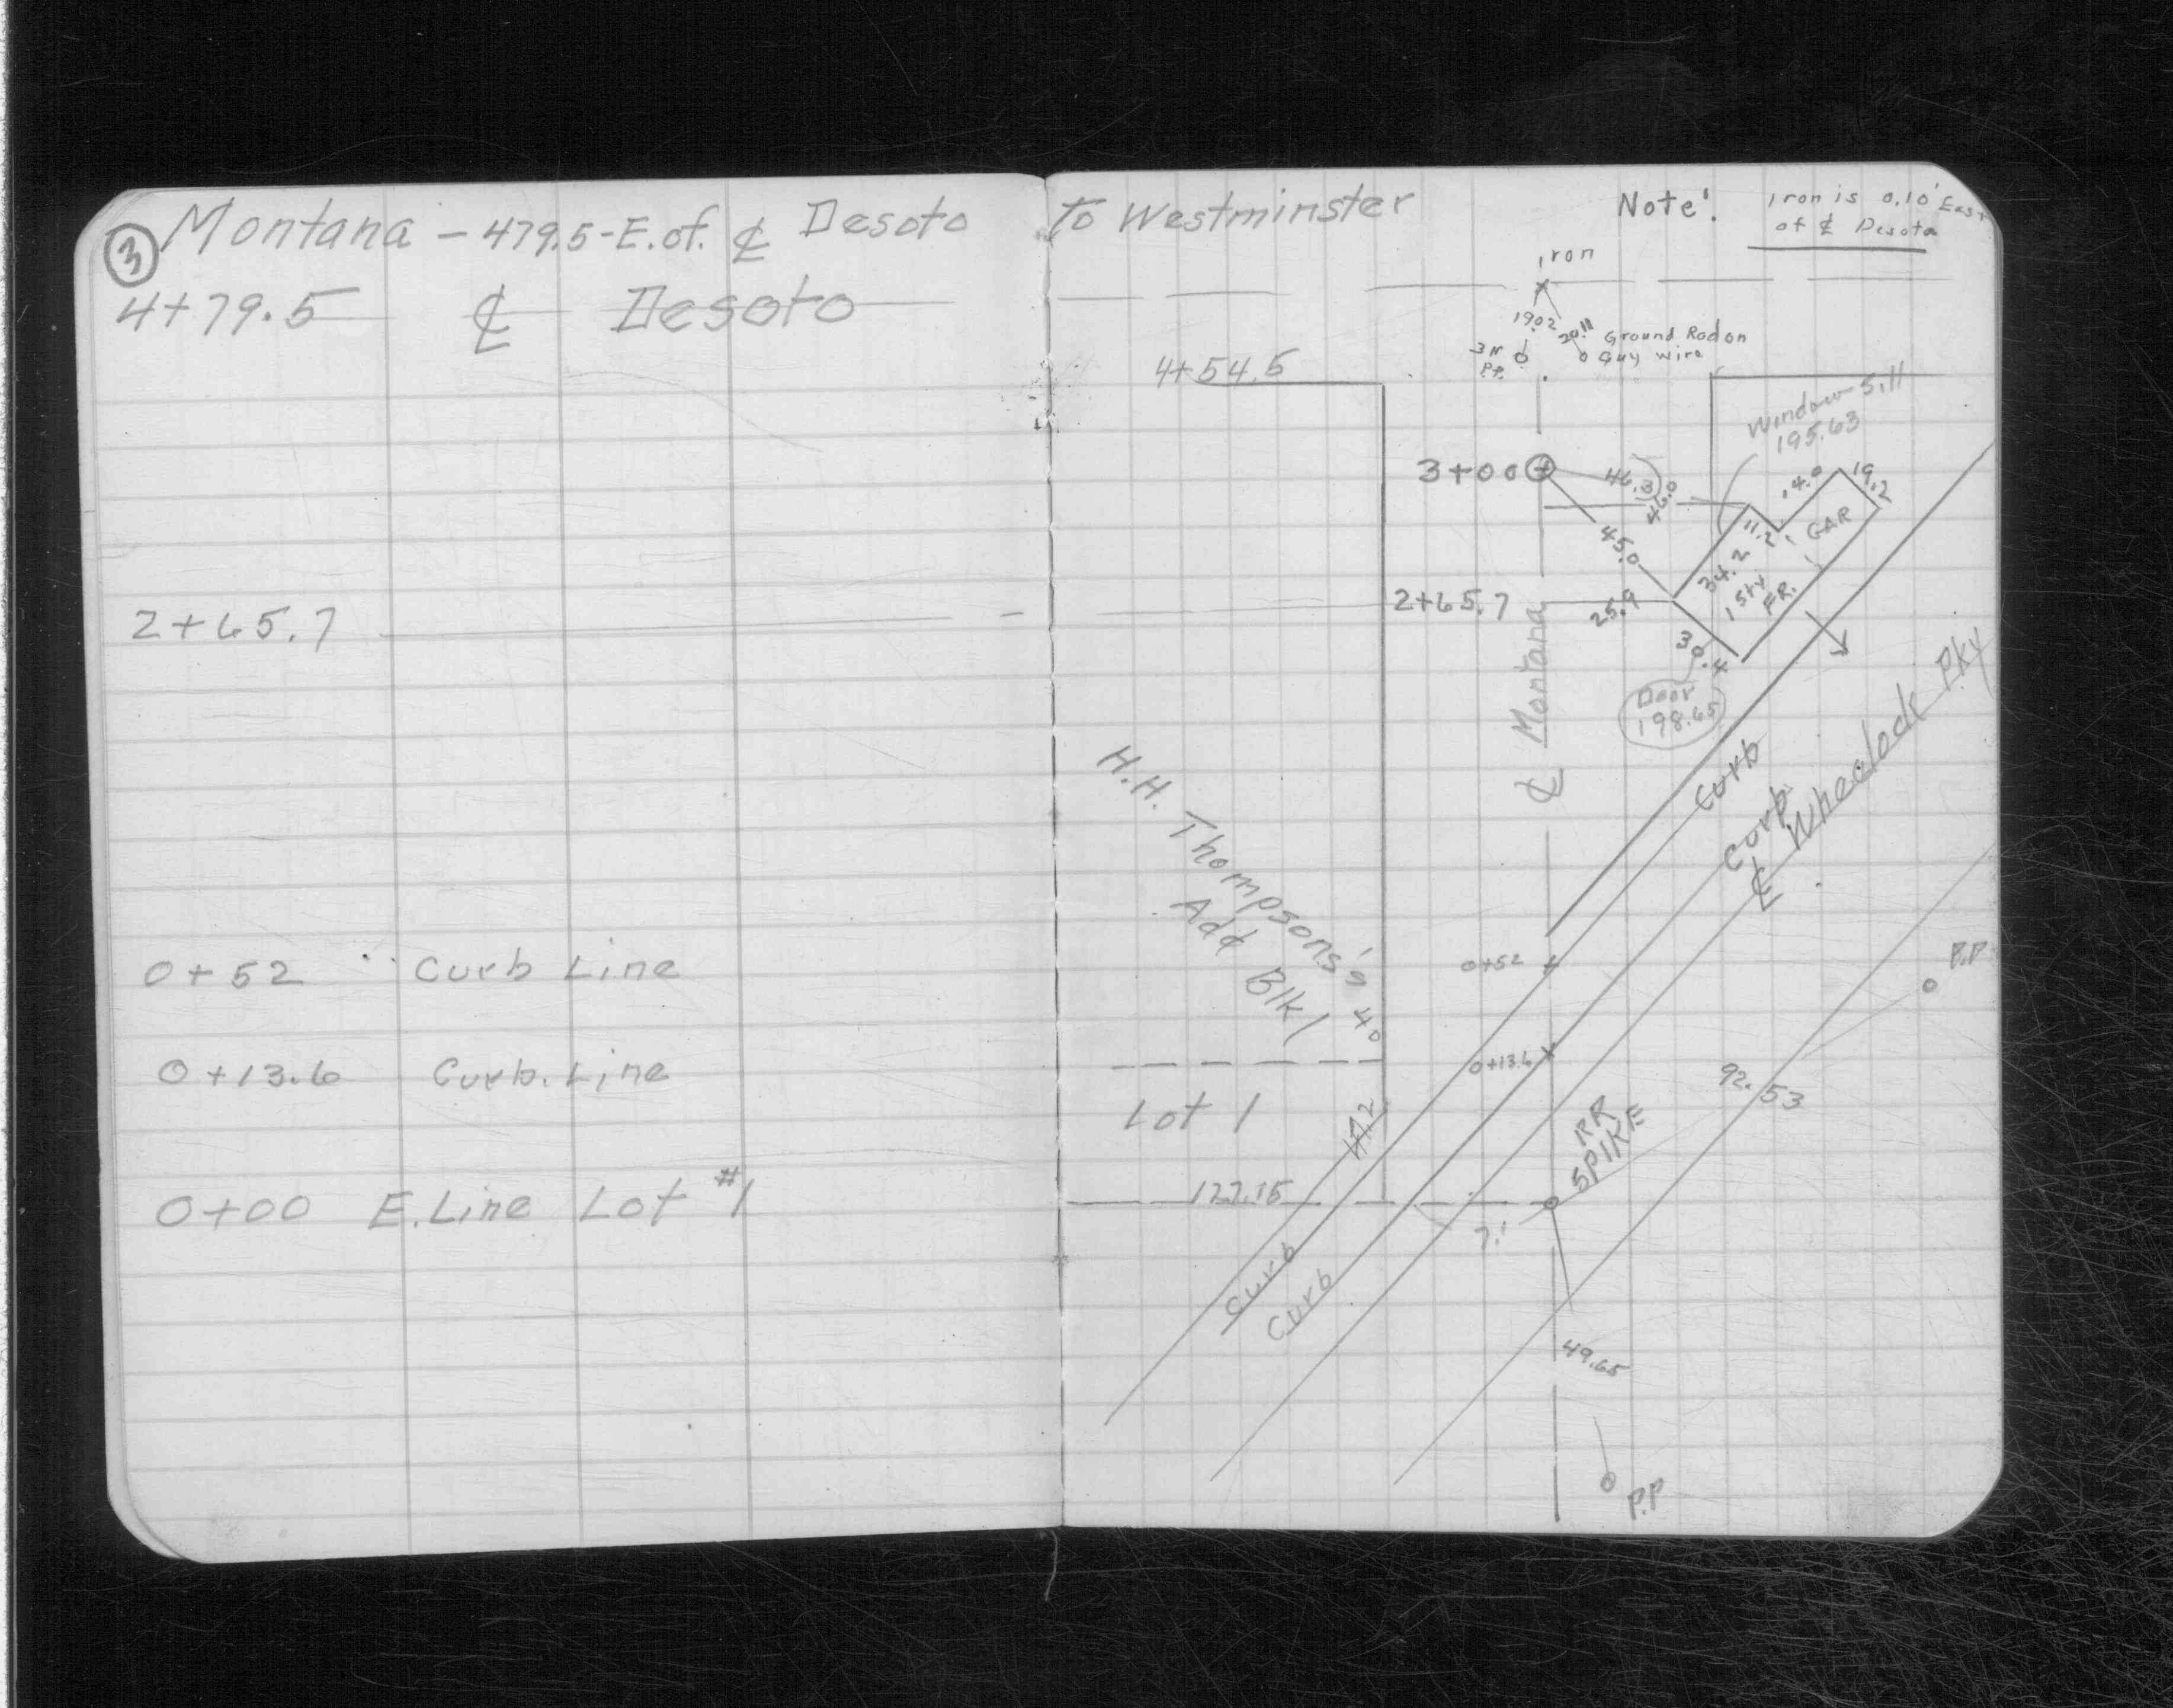 ③ Montana - 479.5 - E. of. ℄ Desoto to Westminster
4+79.5 ℄ Desoto
2+65.7
0+52 Curb Line
0+13.6 Curb. Line
0+00 E. Line Lot #1
Note! Iron is 0.10' East
of ℄ Desota
iron
19.02
20.11
Ground Rod on
Guy wire
P.P.
4+54.5
Window Sill
195.63
3+00
46.3
46.0
45.0
14.0
19.2
11.2
GAR
34.2
1 Sty
FR.
2+65.7
25.9
30.4
Door
198.65
℄ Montana
H.H. Thompson's
Add Blk 1
40
Curb
Curb
℄ Wheelock Pky
0+52
0+13.6
P.P
92.53
Lot 1
RR
SPIKE
127.15
7.1
Curb
Curb
49.65
P.P